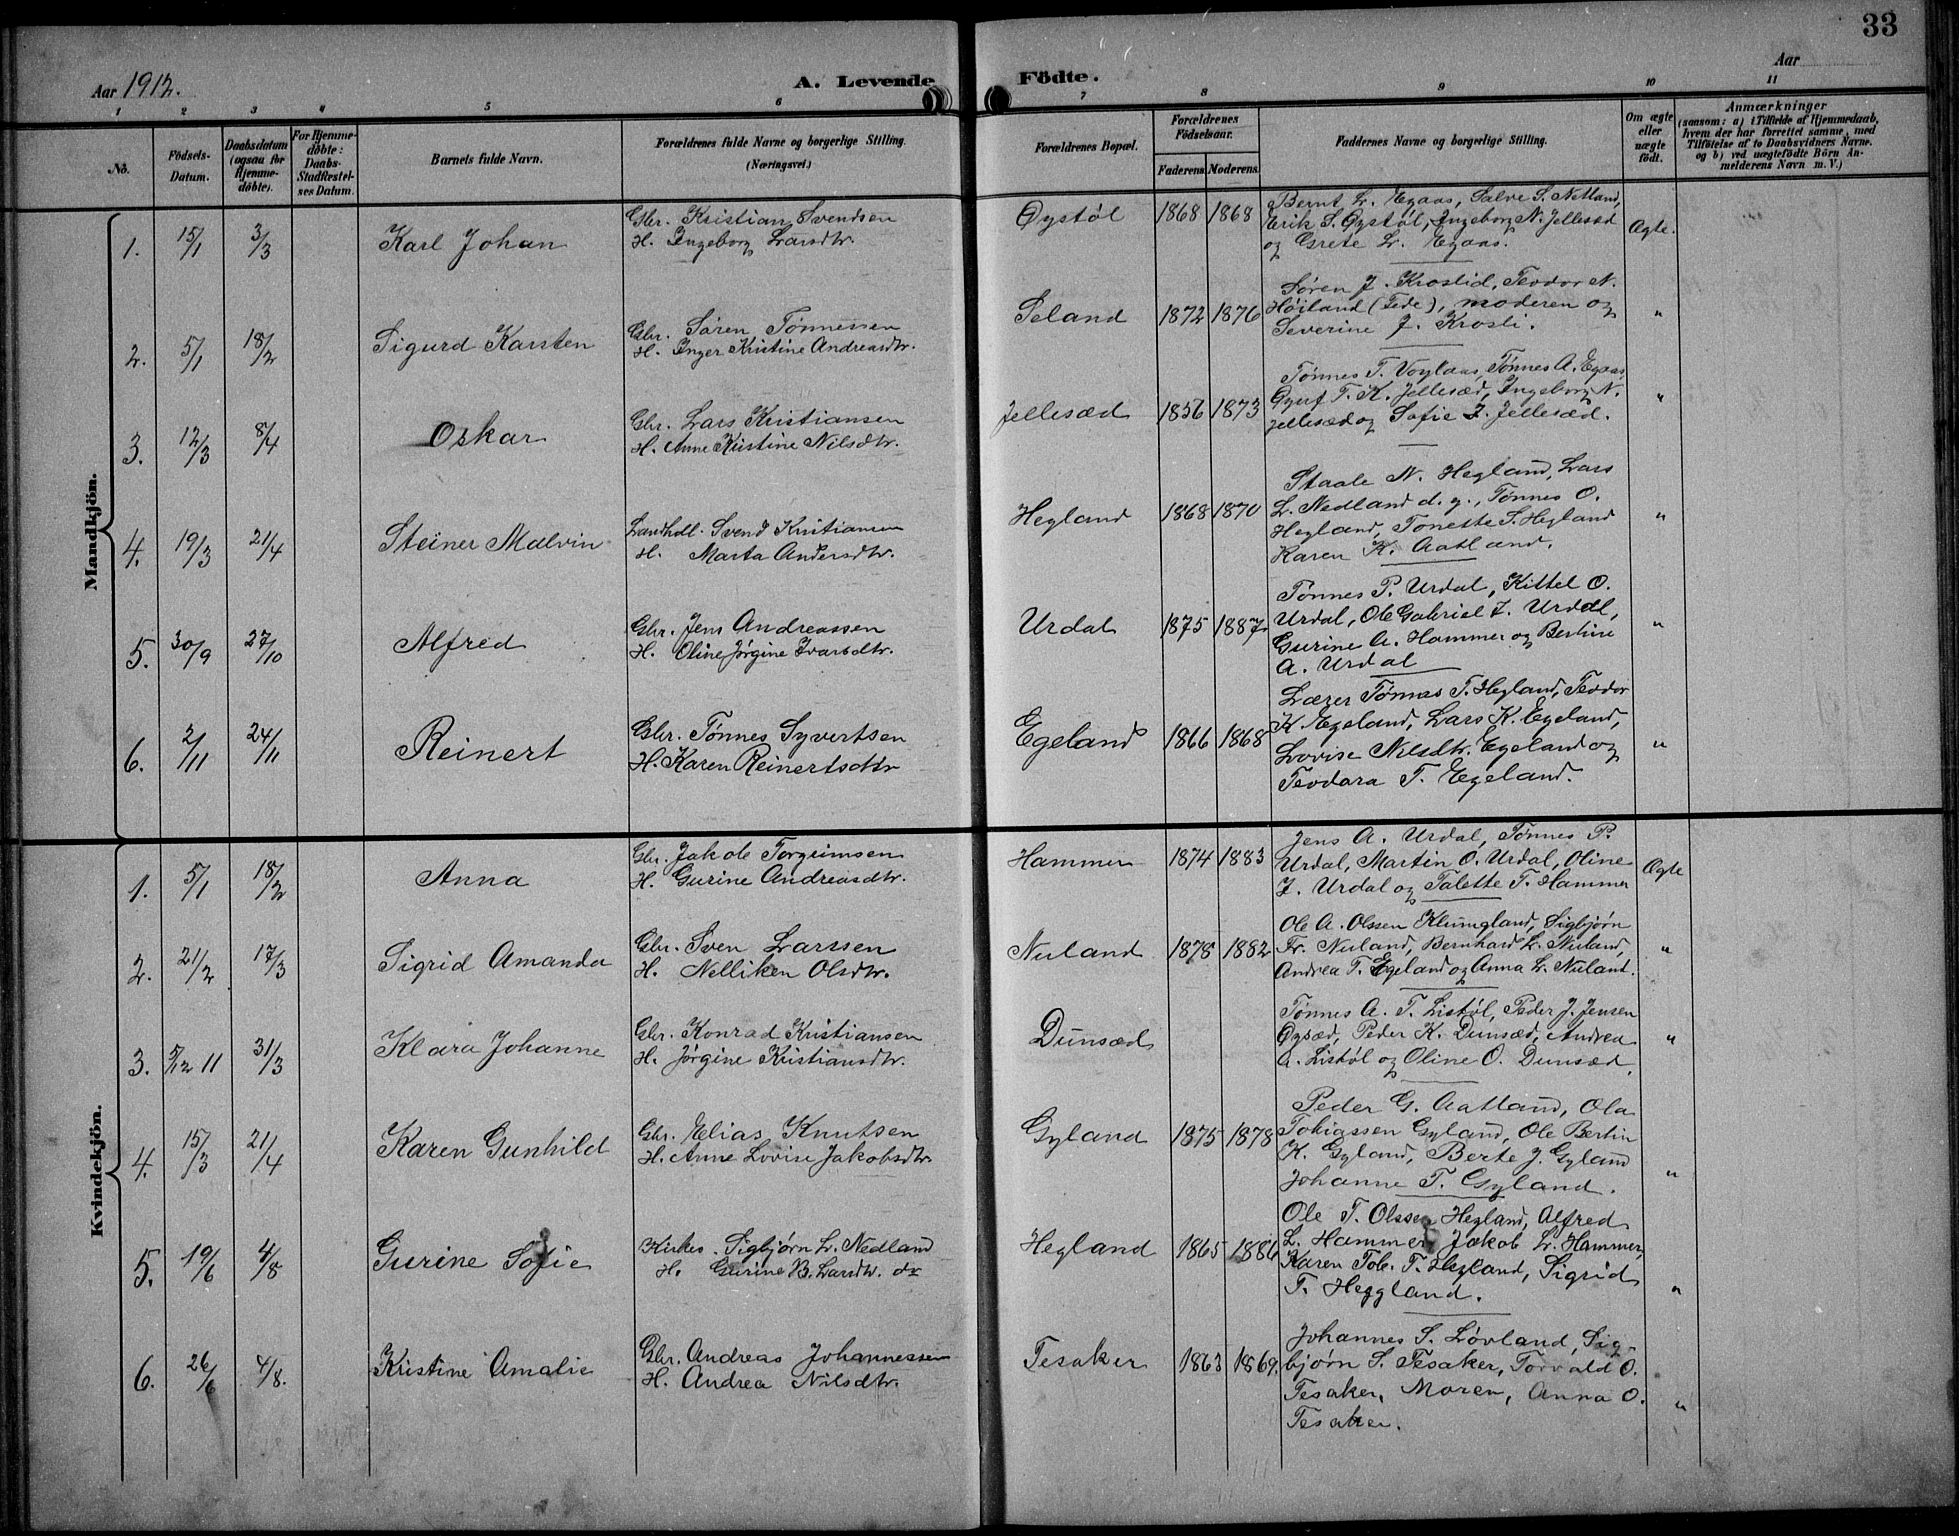 33
Aar 1912.
A. Levende Födte.
Aar
1 2 3 4 5 6 7 8 9 10 11
No.
Födsels-Datum.
Daabsdatum (ogsaa for Hjemme-döbte).
For Hjemme-döbte: Daabs-Stadfæstelses Datum.
Barnets fulde Navn.
Forældrenes fulde Navne og borgerlige Stilling. (Næringsvei.)
Forældrenes Bopæl.
Forældrenes Födselsaar.
Faderens Moderens
Faddernes Navne og borgerlige Stilling.
Om ægte eller uægte födt.
Anmærkninger
(saasom: a) i Tilfælde af Hjemmedaab, hvem der har forrettet samme, med Tilföielse af to Daabsvidners Navne. og b) ved uægtefödte Börn Anmelderens Navn m. V.)
Mandkjön.
1. 15/1 3/3 Karl Johan
Gbr. Kristian Svendsen
H. Ingeborg Larsdtr.
Øystøl 1868 1868
Bernt L. Egaas, Salve S. Netland,
Erik S. Øystøl, Ingeborg N. Jellesæd
og Grete L. Egaas.
Ægte.
2. 5/1 18/2 Sigurd Karsten
Gbr. Søren Tønnessen
H. Inger Kristine Andreasdtr.
Seland 1872 1876
Søren J. Kroslid, Teodor N.
Høiland (Fede), moderen og
Severine J. Krosli.
"
3. 12/3 8/4 Oskar
Gbr. Lars Kristiansen
H. Anne Kristine Nilsdtr.
Jellesæd 1856 1873
Tønnes T. Voglaas, Tønnes A. Egaas,
T. K. Jellesæd, Ingeborg N.
Jellesæd og Sofie J. Jellesæd.
"
4. 19/3 21/4 Steiner Malvin
Landhdl. Svend Kristiansen
H. Marta Andersdtr.
Hegland 1868 1870
Staale N. Hegland, Lars
L. Nedland d. y., Tønnes O.
Hegland, Tonette S. Hegland
Karen K. Aatland.
"
5. 30/9 27/10 Alfred
Gbr. Jens Andreassen
H. Oline Jørgine Ivarsdtr.
Urdal 1875 1887
Tønnes P. Urdal, Kittel O.
Urdal, Ole Gabriel J. Urdal,
Gurine A. Hammer og Bertine
A. Urdal
"
6. 2/11 24/11 Reinert
Gbr. Tønnes Syvertsen
H. Karen Reinertsdtr
Egeland 1866 1868
Lærer Tønnes T. Hegland, Teodor
K. Egeland, Lars K. Egeland,
Lovise Nilsdtr. Egeland og
Teodara T. Egeland.
"
Kvindekjön.
1. 5/1 18/2 Anna
Gbr. Jakob Torgrimsen
H. Gurine Andreasdtr.
Hammer 1874 1883
Jens A. Urdal, Tønnes P.
Urdal, Martin O. Urdal, Oline
J. Urdal og Talette T. Hammer
Ægte
2. 21/2 17/3 Sigrid Amanda
Gbr. Sven Larssen
H. Nelliken Olsdtr.
Nuland 1878 1882
Ole A. Olssen Klungland, Sigbjørn
Fr. Nuland, Bernhard L. Nuland,
Andrea T. Egeland og Anna L. Nuland.
"
3. 5/12 11 31/3 Klara Johanne
Gbr. Konrad Kristiansen
H. Jørgine Kristiansdtr.
Dunsæd
Tønnes A. T. Listøl, Peder J. Jensen
Øysæd, Peder K. Dunsæd, Andrea
A. Listøl og Oline O. Dunsæd.
"
4. 15/3 21/4 Karen Gunhild
Gbr. Elias Knutsen
H. Anne Lovise Jakobsdtr.
Gyland 1875 1878
Peder G. Aatland, Ola
Tobiassen Gyland, Ole Bertin
K. Gyland, Berte J. Gyland
Johanne T. Gyland.
"
5. 19/6 4/8 Gurine Sofie
Kirkes. Sigbjørn L. Nedland
H. Gurine B. Larsdtr.
Hegland 1865 1886
Ole T. Olssen Hegland, Alfred
L. Hammer, Jakob L. Hammer,
Karen Tob. T. Hegland, Sigrid
T. Heggland.
"
6. 26/6 4/8. Kristine Amalie
Gbr. Andreas Johannessen
H. Andrea Nilsdtr.
Tesaker 1863 1869.
Johannes S. Løvland, Sig-
bjørn S. Tesaker, Torvald O.
Tesaker, Moren, Anna O.
Tesaker.
"